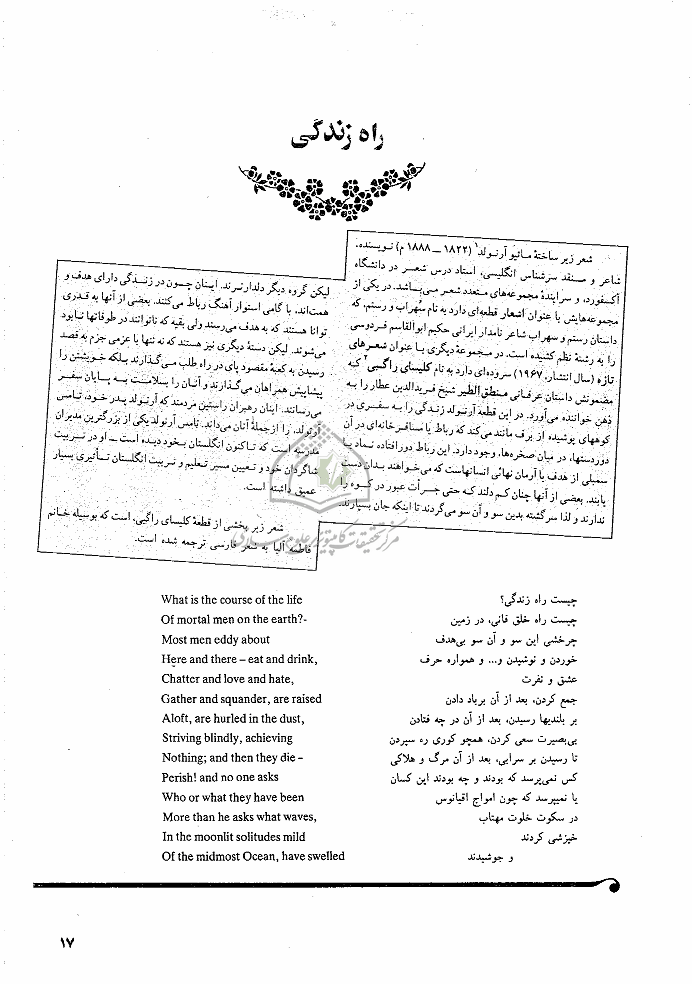 راه زندگی
شعر زیر ساختهٔ ماثیو آرنولد۱ (۱۸۲۲ ــ ۱۸۸۸ م) نویسنده،
شاعر و منتقد سرشناس انگلیسی، استاد درس شعر در دانشگاه
آکسفورد، و سرایندهٔ مجموعه‌های متعدد شعر می‌باشد. در یکی از
مجموعه‌هایش با عنوان اشعار قطعه‌ای دارد به نام سُهراب و رستم، که
داستان رستم و سهراب شاعر نامدار ایرانی حکیم ابوالقاسم فردوسی
را به رشتهٔ نظم کشیده است. در مجموعهٔ دیگری با عنوان شعرهای
تازه (سال انتشار، ۱۹۶۷) سروده‌ای دارد به نام کلیسای راگبی۲ که
مضمونش داستان عرفانی منطق‌الطیر شیخ فریدالدین عطار را به
ذهن خواننده می‌آورد. در این قطعهٔ آرنولد زندگی را به سفری در
کوههای پوشیده از برف مانند می‌کند که رباط یا مسافرخانه‌ای در آن
دوردستها، در میان صخره‌ها، وجود دارد. این رباط دورافتاده نماد یا
سمبلی از هدف یا آرمان نهائی انسانهاست که می‌خواهند بدان دست
یابند. بعضی از آنها چنان کم دلند که حتی جرأت عبور در کوه را
ندارند و لذا سرگشته بدین سو و آن سو می‌گردند تا اینکه جان بسپارند.
لیکن گروه دیگر دلدارترند. اینان چون در زندگی دارای هدف و
همت‌اند، با گامی استوار آهنگ رباط می‌کنند. بعضی از آنها به قدری
توانا هستند که به هدف می‌رسند ولی بقیه که ناتوانند در طوفانها نابود
می‌شوند. لیکن دستهٔ دیگری نیز هستند که نه تنها با عزمی جزم به قصد
رسیدن به کعبهٔ مقصود پای در راه طلب می‌گذارند بلکه خویشتن را
پیشاپیش همراهان می‌گذارند و آنان را بسلامت به پایان سفر
می‌رسانند. اینان رهبران راستین مردمند که آرنولد پدر خود، تامس
آرنولد، را از جملهٔ آنان می‌داند. تامس آرنولد یکی از بزرگترین مدیران
مدرسه است که تاکنون انگلستان بخود دیده است ــ او در تربیت
شاگردان خود و تعیین مسیر تعلیم و تربیت انگلستان تأثیری بسیار
عمیق داشته است.
شعر زیر بخشی از قطعهٔ کلیسای راگبی، است که بوسیله خانم
فاطمه آلیا به شعر فارسی ترجمه شده است.
مرکز تحقیقات کامپیوتری علوم اسلامی
What is the course of the life
Of mortal men on the earth?-
Most men eddy about
Here and there – eat and drink,
Chatter and love and hate,
Gather and squander, are raised
Aloft, are hurled in the dust,
Striving blindly, achieving
Nothing; and then they die –
Perish! and no one asks
Who or what they have been
More than he asks what waves,
In the moonlit solitudes mild
Of the midmost Ocean, have swelled
چیست راه زندگی؟
چیست راه خلق فانی، در زمین
چرخشی این سو و آن سو بی‌هدف
خوردن و نوشیدن و... و همواره حرف
عشق و نفرت
جمع کردن، بعد از آن برباد دادن
بر بلندیها رسیدن، بعد از آن در چه فتادن
بی‌بصیرت سعی کردن، همچو کوری ره سپردن
تا رسیدن بر سرابی، بعد از آن مرگ و هلاکی
کس نمی‌پرسد که بودند و چه بودند این کسان
یا نمیپرسد که چون امواج اقیانوس
در سکوت خلوت مهتاب
خیزشی کردند
و جوشیدند
۱۷